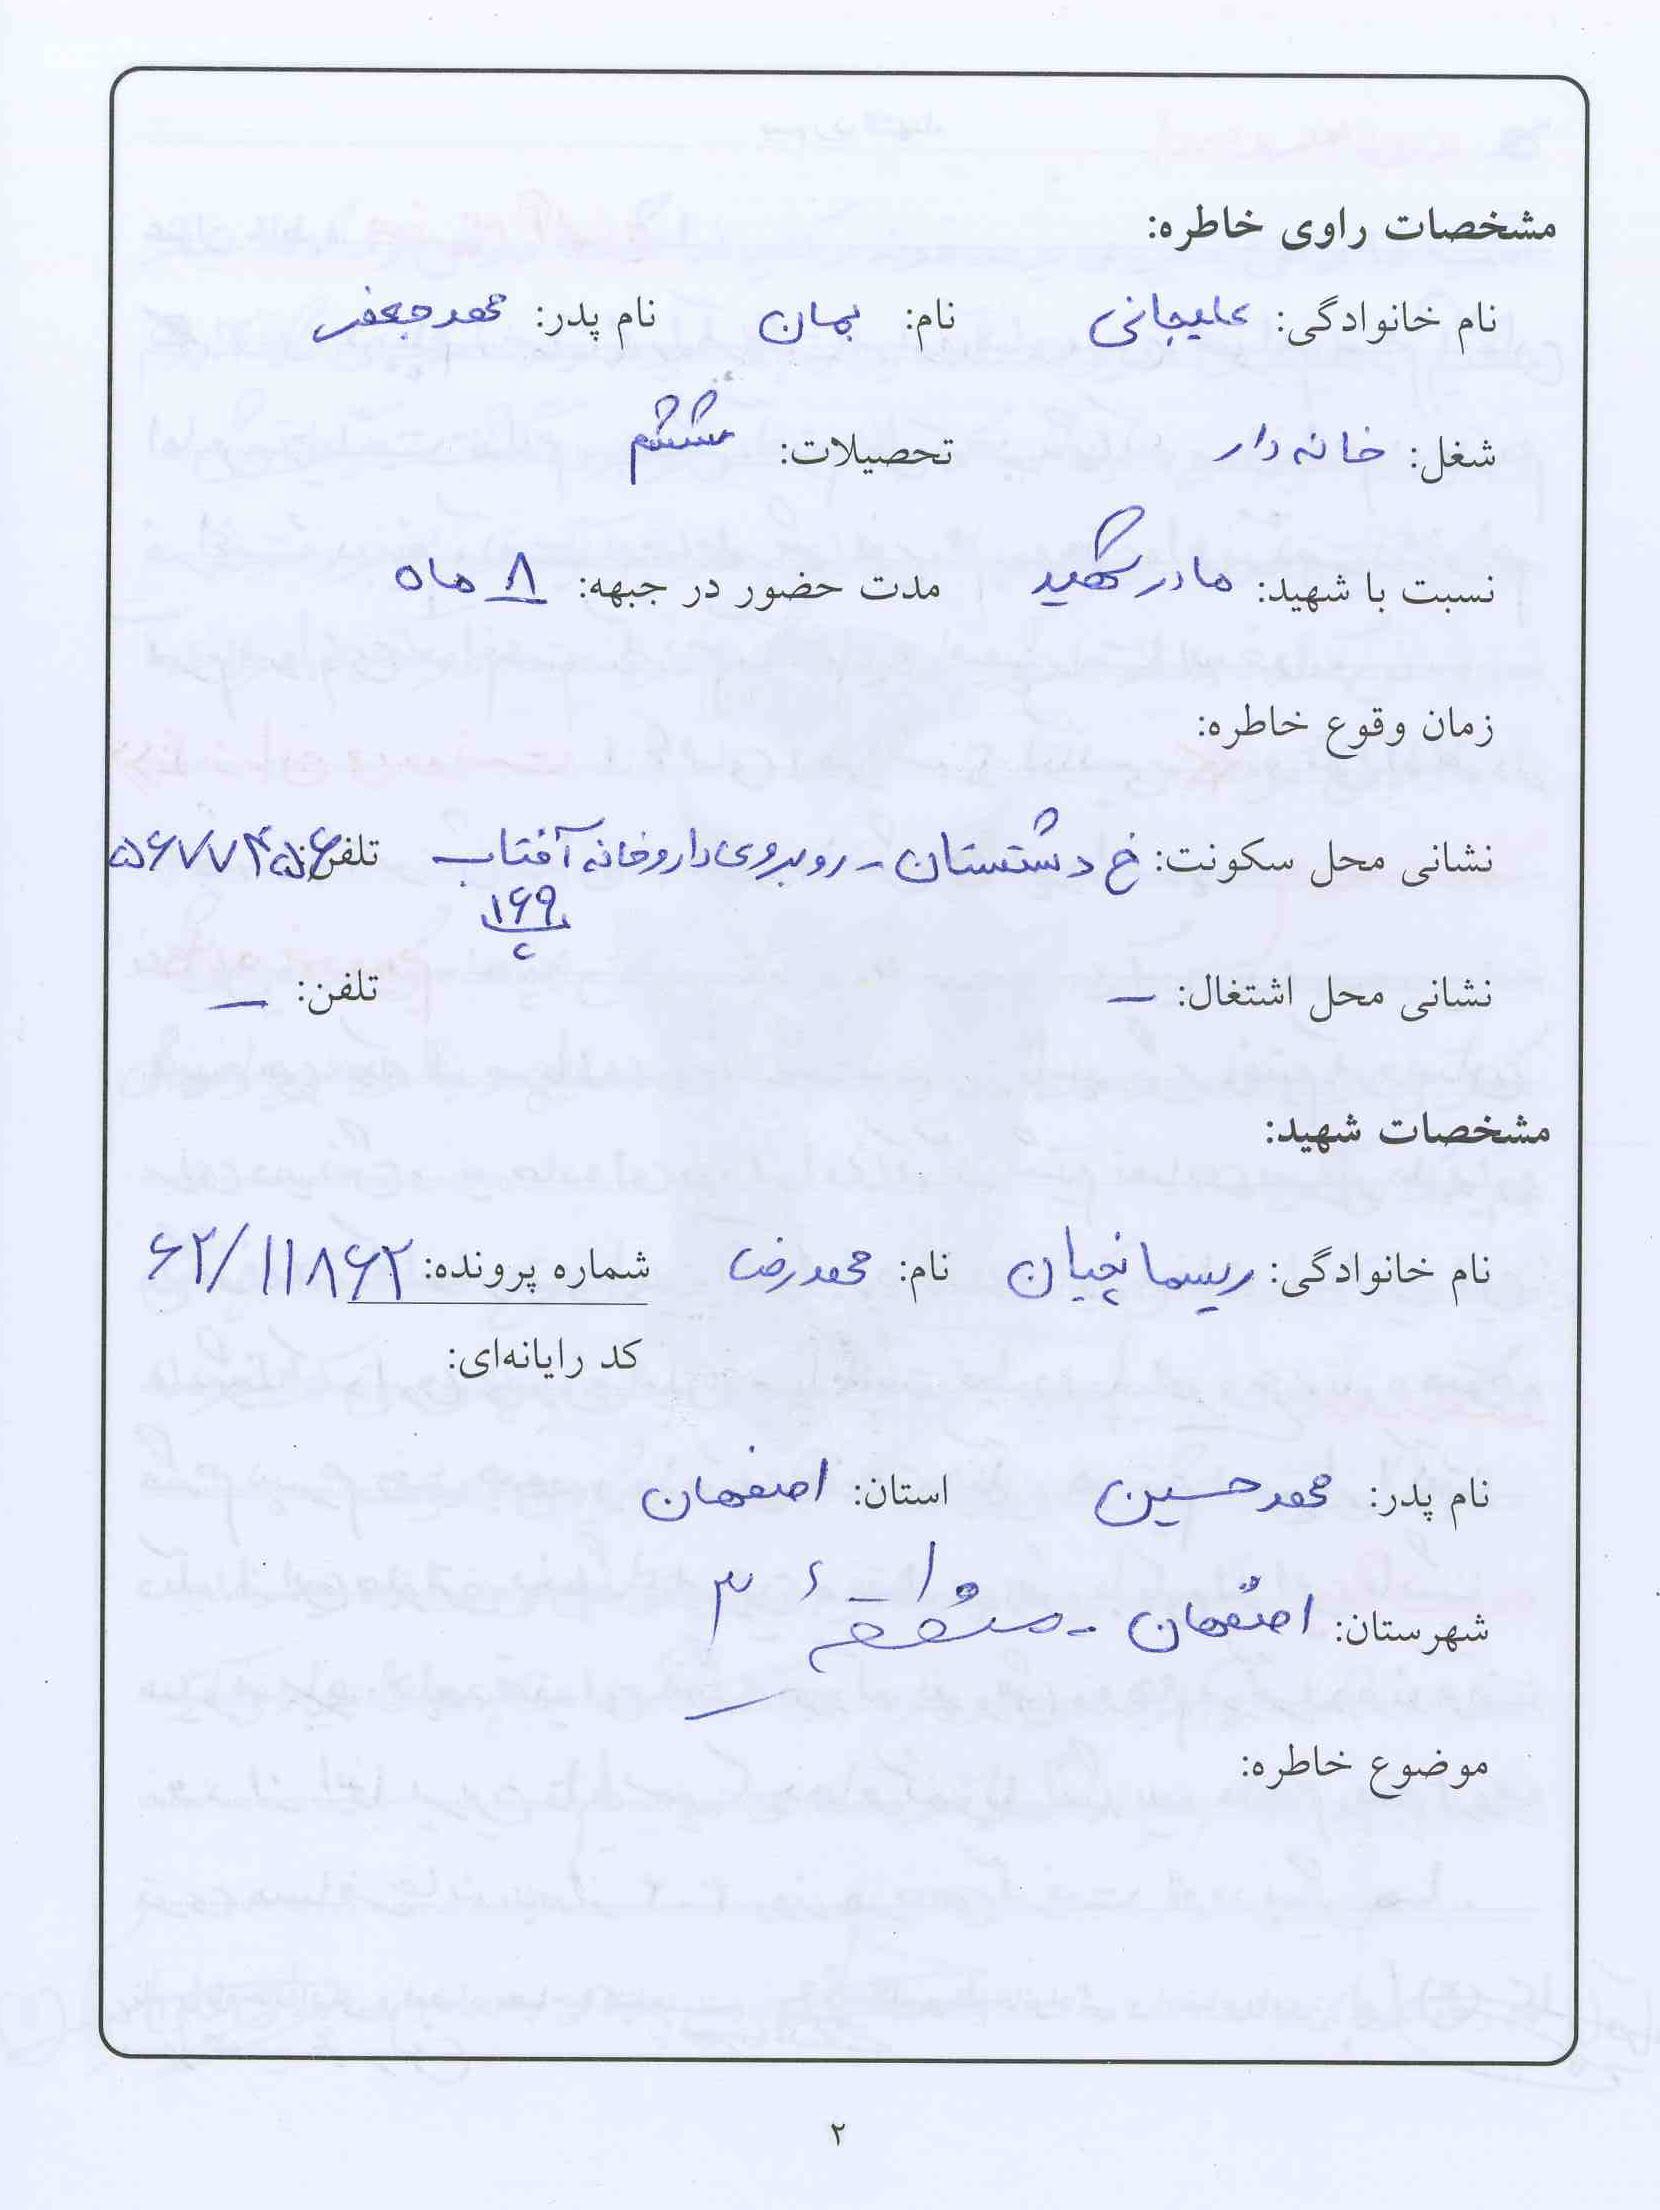 مشخصات راوی خاطره:
نام خانوادگی: علیجانی نام: بمان نام پدر: محمدجعفر
شغل: خانه دار تحصیلات: ششم
نسبت با شهید: مادر شهید مدت حضور در جبهه: ۸ ماه
زمان وقوع خاطره:
نشانی محل سکونت: خ دشتستان - روبروی داروخانه آفتاب تلفن: ۵۶۷۷۴۵۶
۱۶۹
نشانی محل اشتغال: – تلفن: –
مشخصات شهید:
نام خانوادگی: ریسمانچیان نام: محمدرضا شماره پرونده: ۶۲/۱۱۸۶۲
کد رایانه‌ای:
نام پدر: محمدحسین استان: اصفهان
شهرستان: اصفهان - منطقه ۳
موضوع خاطره:
۲